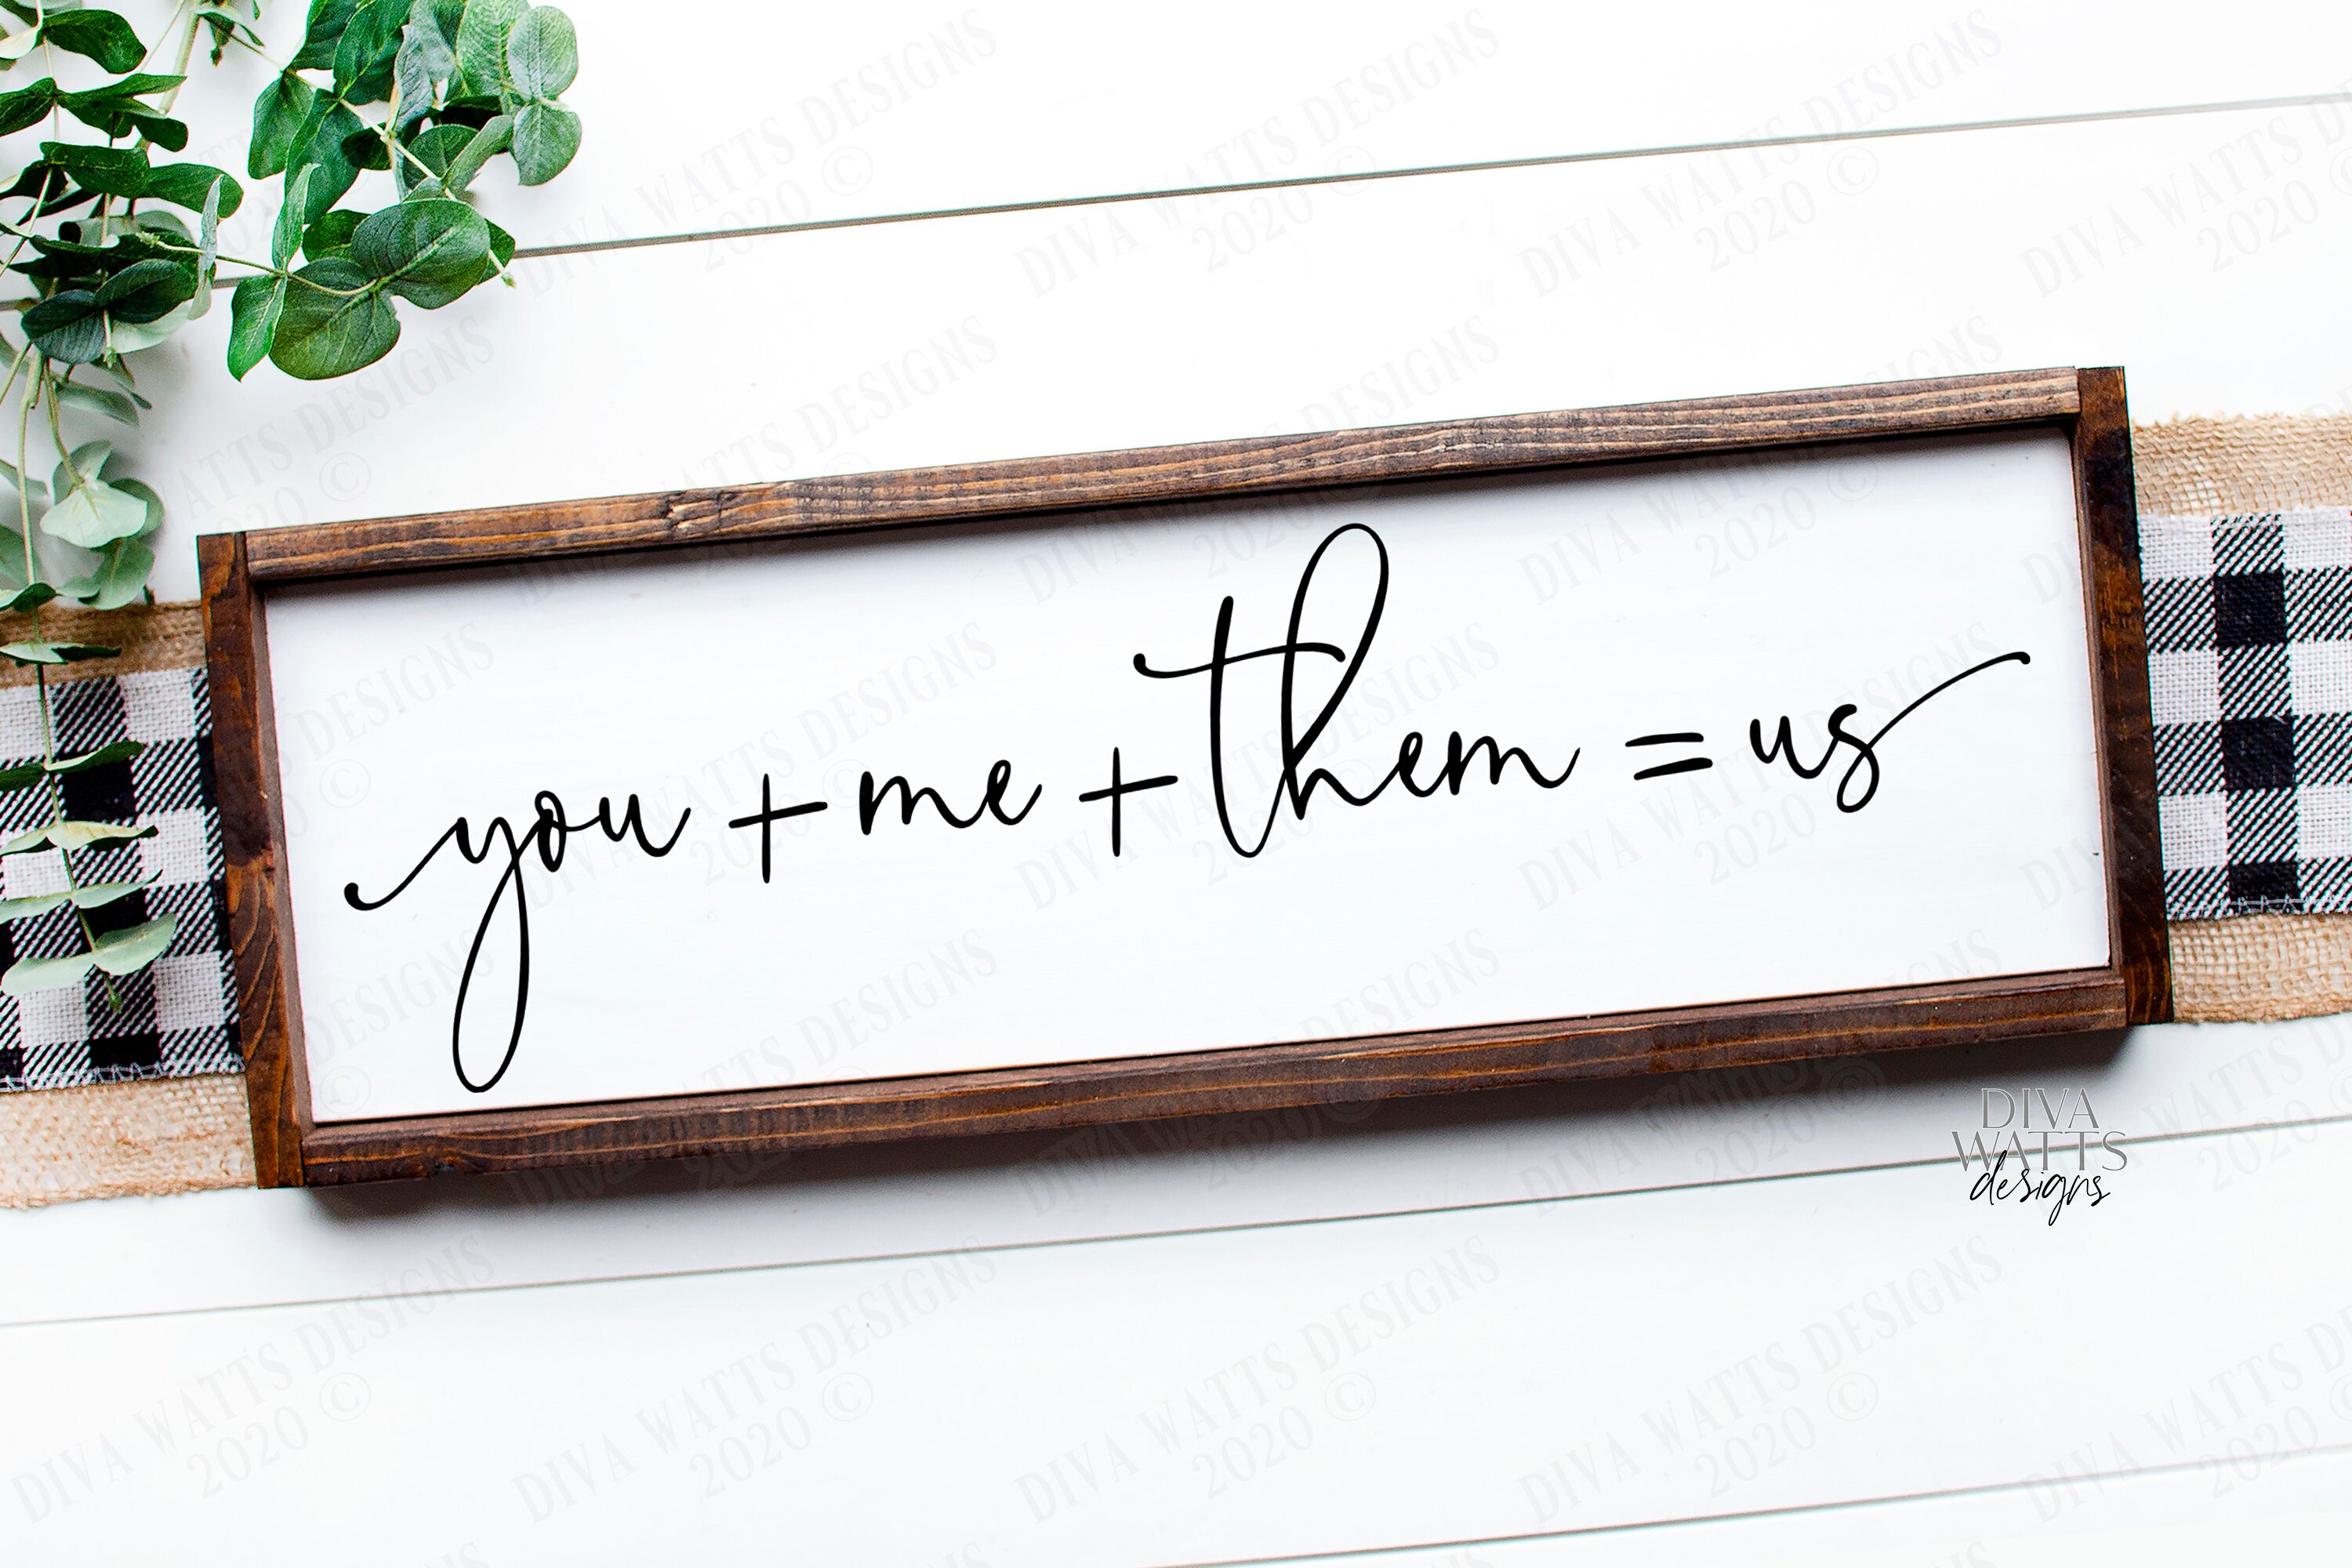 you + me + them = us
DIVA
WATTS
designs
DIVA WATTS DESIGNS
2020 ©